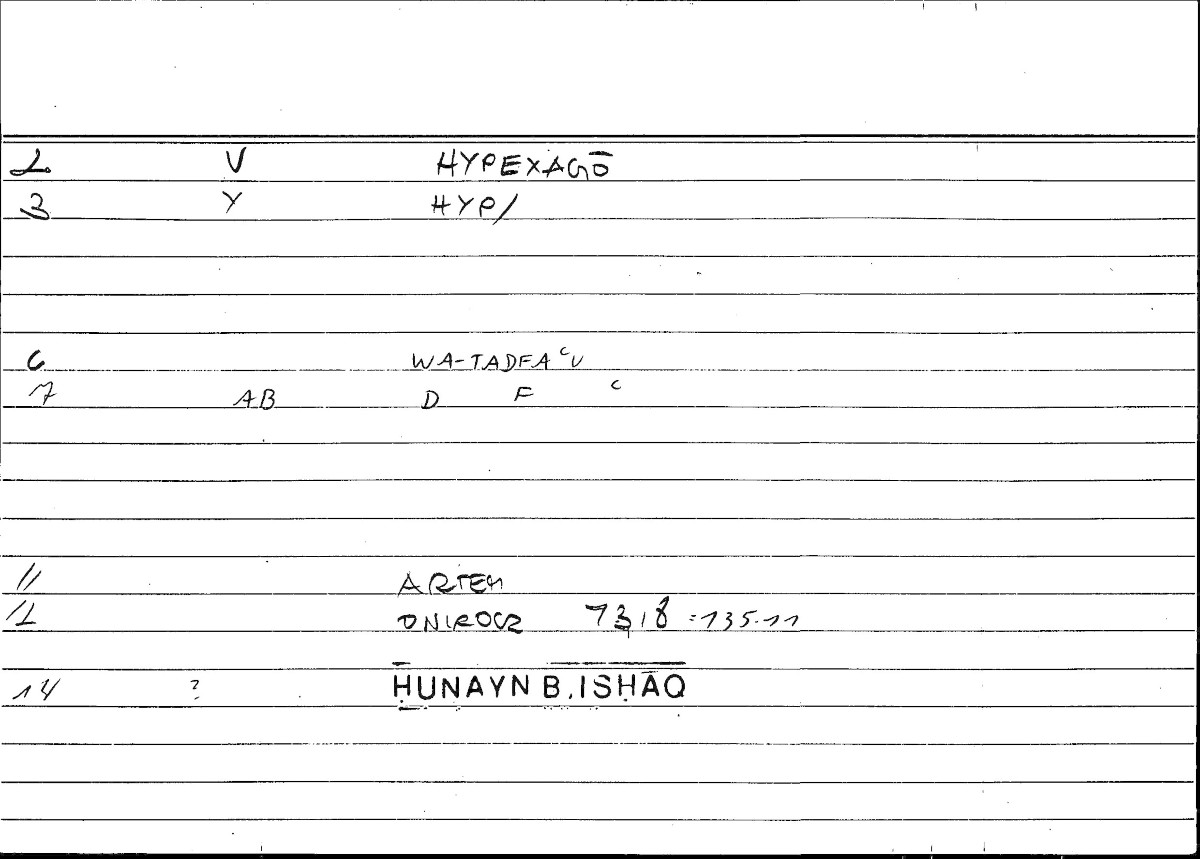 2 V HYPEXAGŌ
3 Y HYP/
6 WA-TADFAᶜU
7 AB D F ᶜ
11 ARTEM
12 ONIROCR 73,8 = 135.11
14 ? ḤUNAYN B. ISḤĀQ